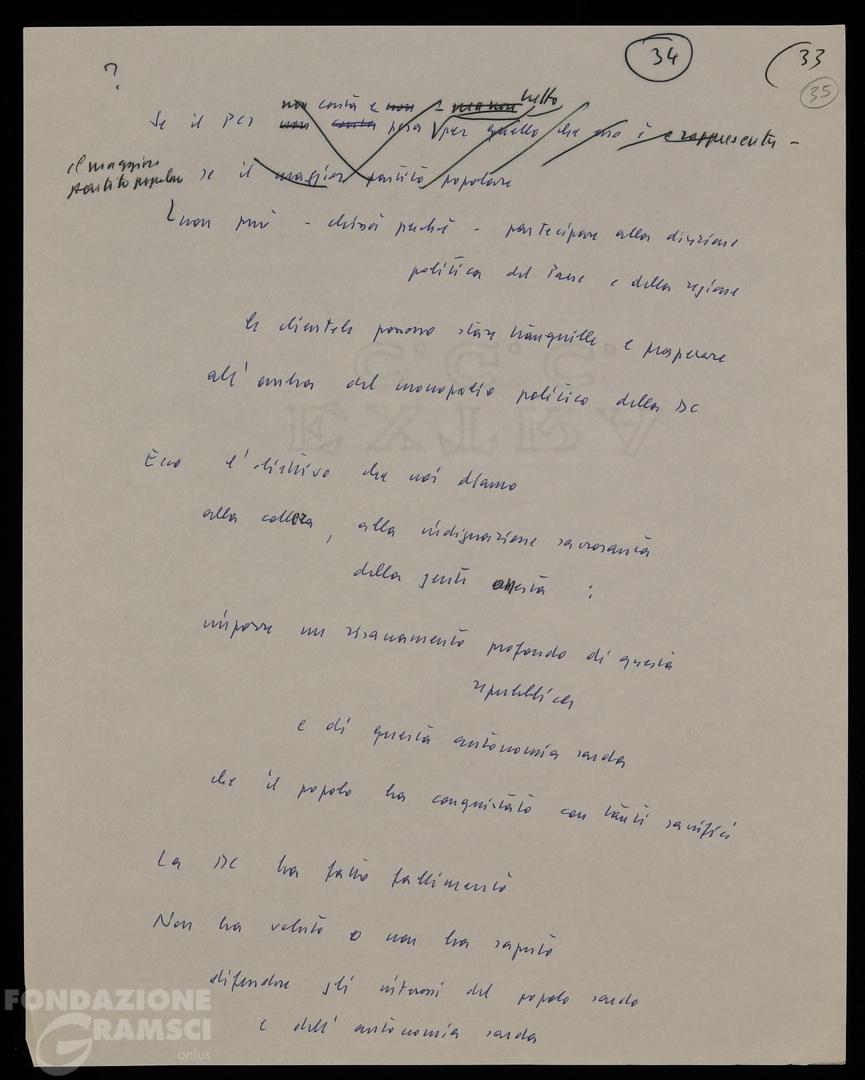 ?
34
33
35
non conta e non tutto
Se il PCI non conta pesa per quello che esso è e rappresenta -
il maggior
partito popolare
se il maggior partito popolare
non può - chissà perché - partecipare alla direzione
politica del Paese e della regione
le clientele possono stare tranquille e prosperare
all'ombra del monopolio politico della DC
Ecco l'obiettivo che noi diamo
alla collera, alla indignazione sacrosanta
della gente onesta :
imporre un risanamento profondo di questa
repubblica
e di questa autonomia sarda
che il popolo ha conquistato con tanti sacrifici
La DC ha fatto fallimento
Non ha voluto o non ha saputo
difendere gli interessi del popolo sardo
e dell'autonomia sarda
C.C.C.
EXTRA
FONDAZIONE
GRAMSCI
onlus